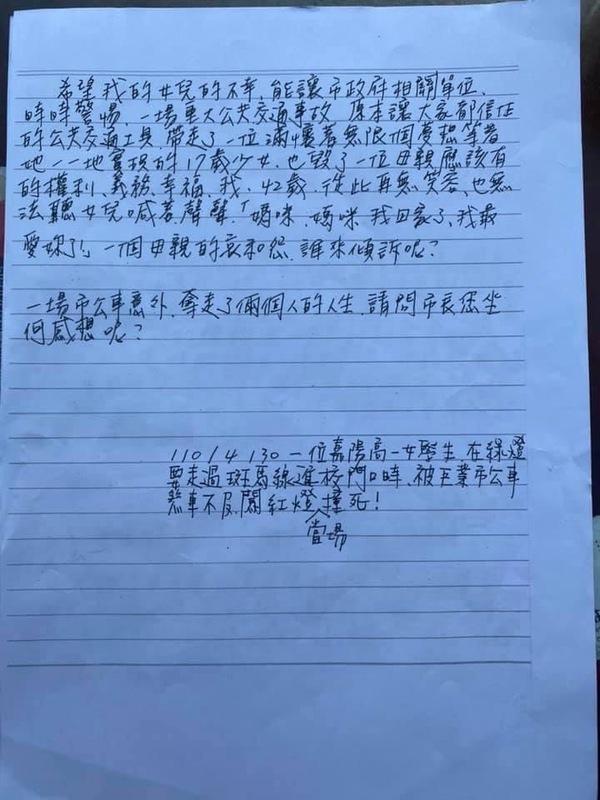 希望我的女兒的不幸，能讓市政府相關單位、
時時警惕，一場重大公共交通事故，原本讓大家都信任
的公共交通工具，帶走了一位滿懷著無限個夢想等著
她一一地實現的17歲少女，也毀了一位母親應該有
的權利、義務、幸福，我，42歲，從此再無笑容，也無
法聽女兒喊著聲聲「媽咪、媽咪，我回家了，我最
愛妳了」，一個母親的哀和怨，誰來傾訴呢？
一場市公車意外，奪走了倆個人的人生，請問市長您坐
何感想呢？
110/4/30 一位嘉陽高一女學生，在綠燈
要走過斑馬線進校門口時，被巨業市公車
煞車不及，闖紅燈撞死！
當場